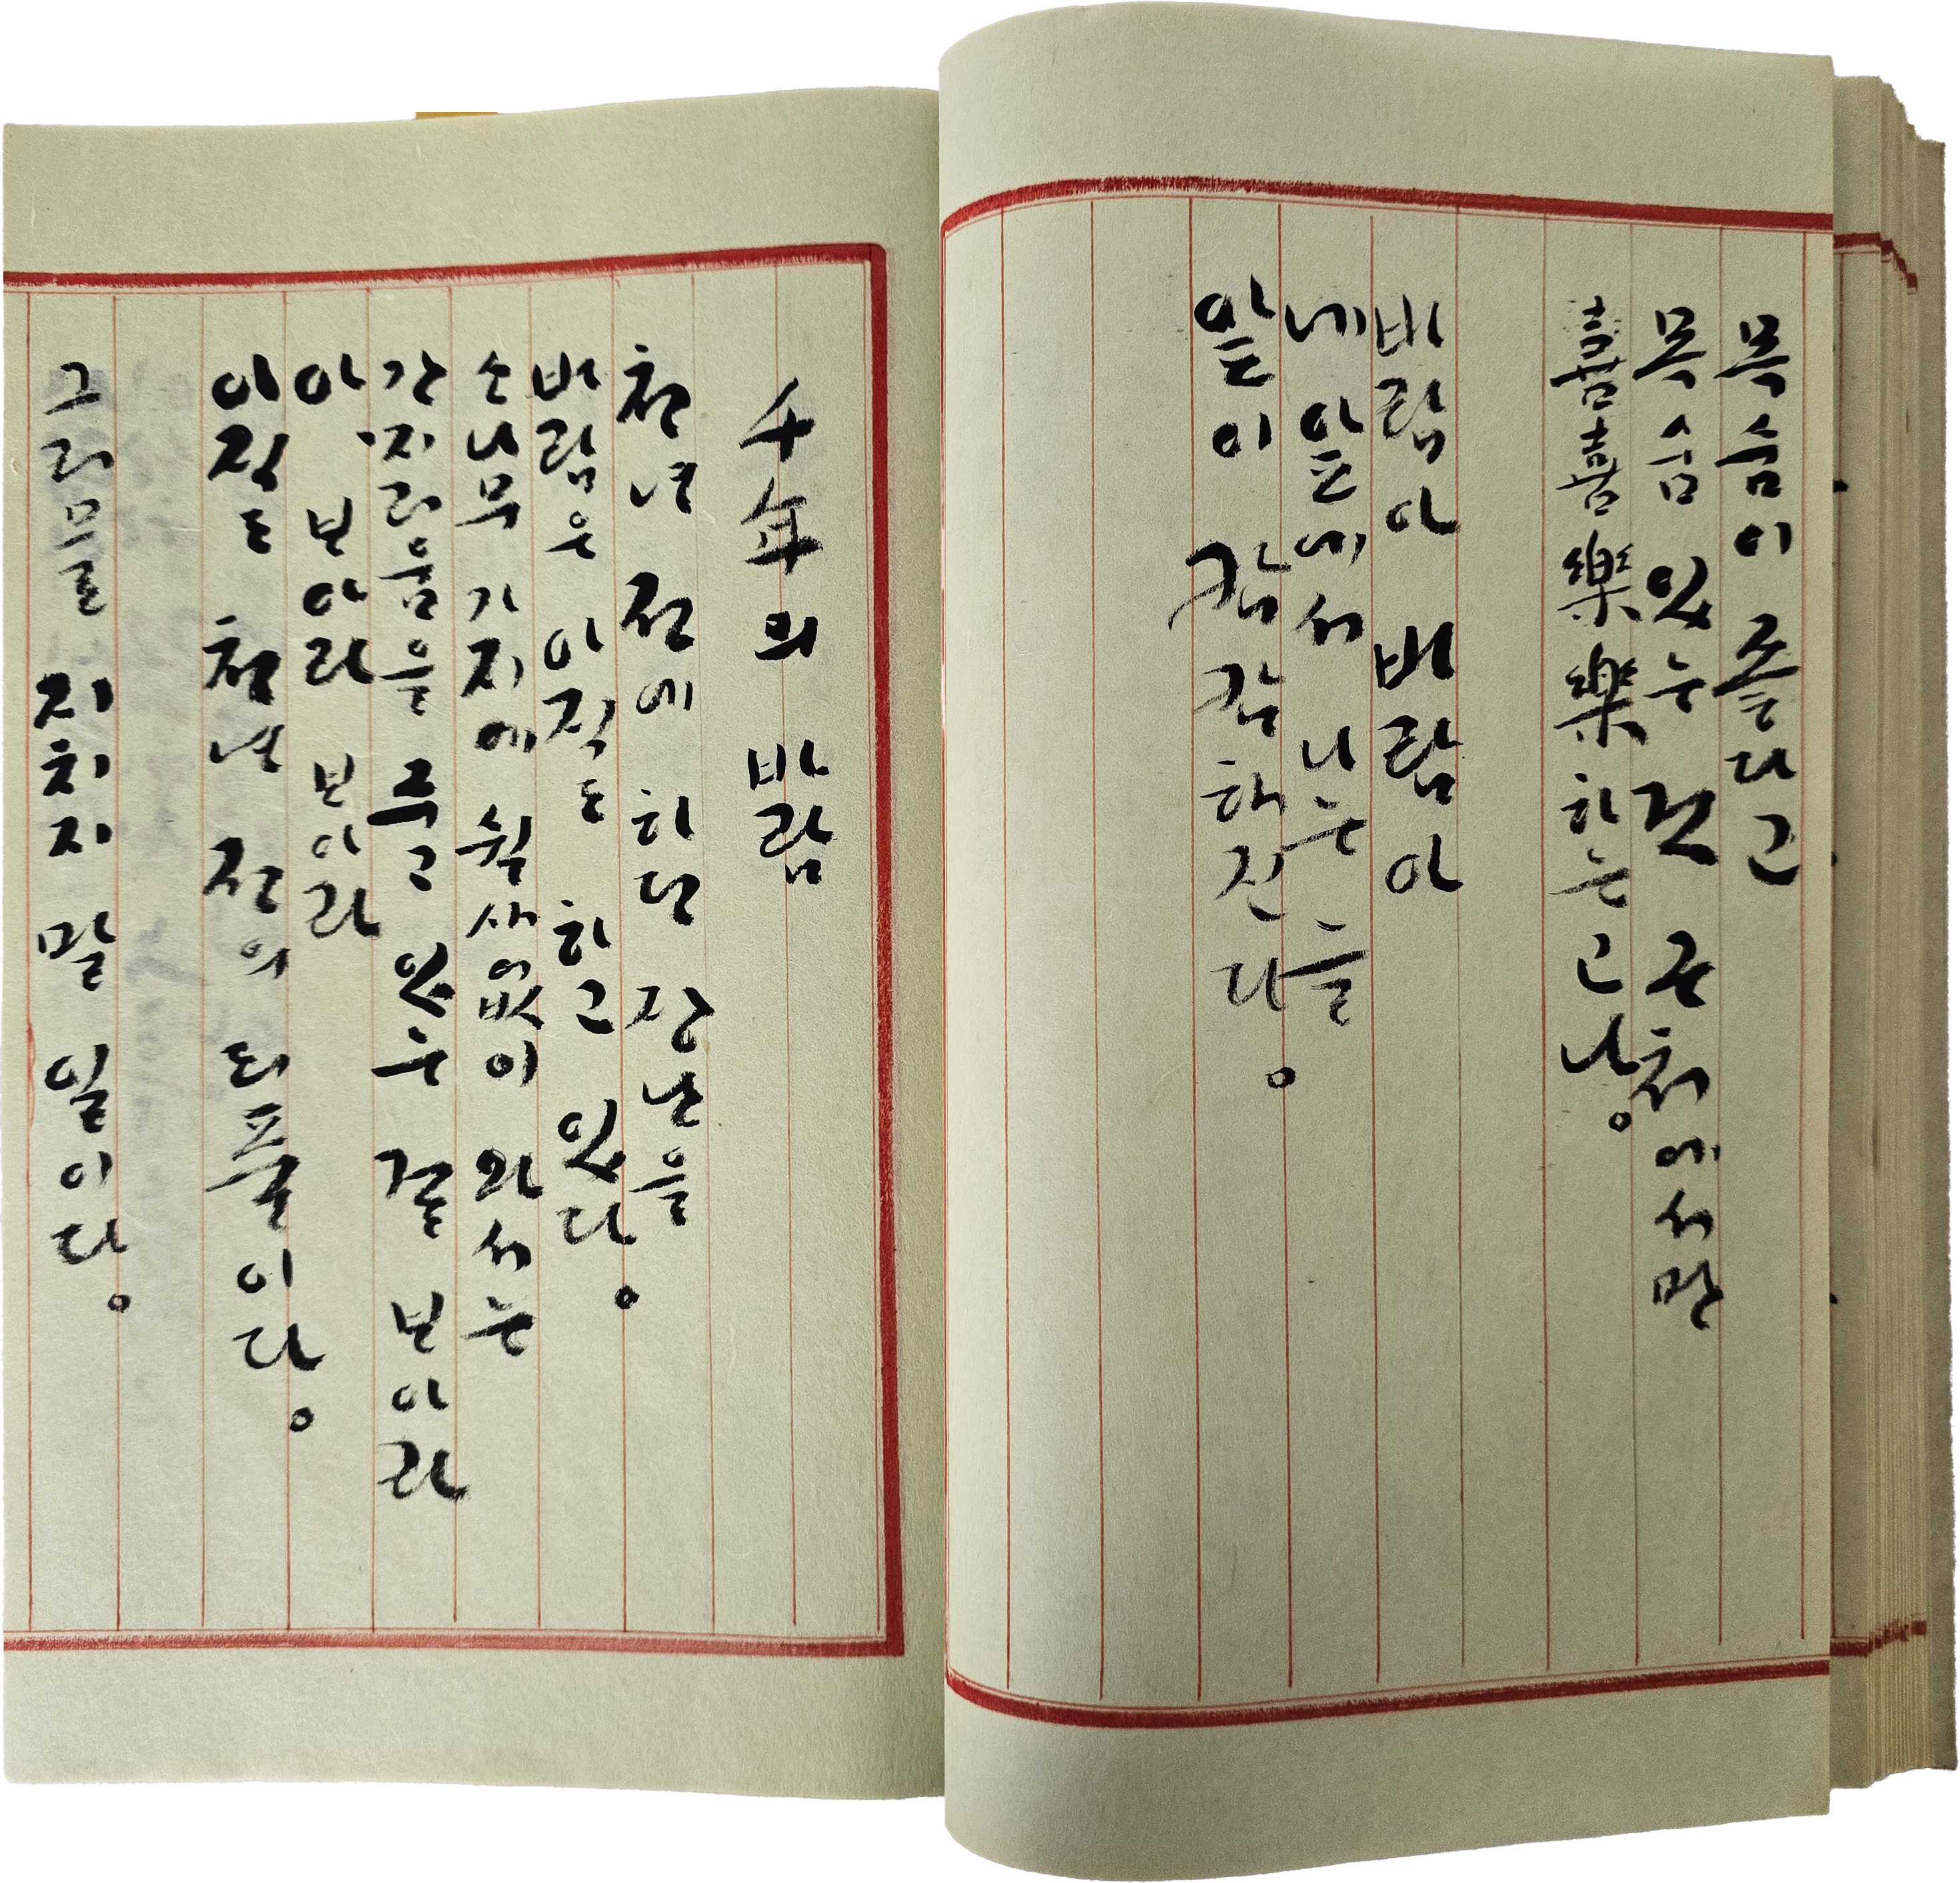 목숨이 좋다고
목숨 있는 것 근처에서만
喜喜樂樂하는고나。
바람아 바람아
네 앞에서 나는 늘
앞이 캄캄해진다。
千年의 바람
천년 전에 하던 장난을
바람은 아직도 하고 있다。
소나무 가지에 쉴새없이 와서는
간지러움을 주고 있는 걸 보아라
아, 보아라 보아라
아직도 천년 전의 되풀이다。
그러므로 지치지 말 일이다。